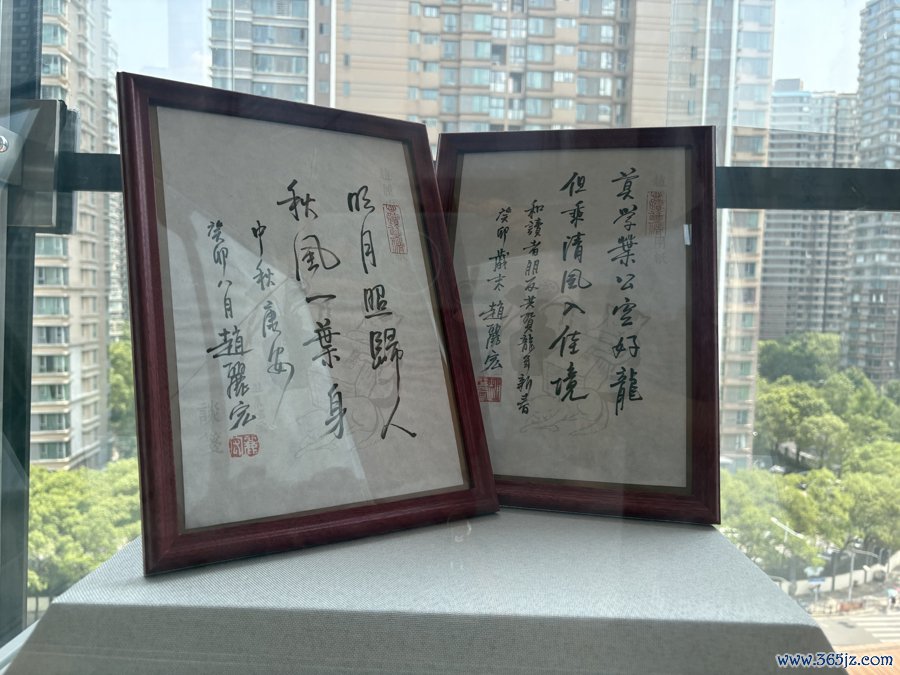 明月照歸人
秋風一葉身
中秋康安
癸卯八月趙麗宏
莫學葉公空好龍
但乘清風入佳境
和讀者朋友共賀龍年新春
癸卯歲末趙麗宏
www.365jz.com